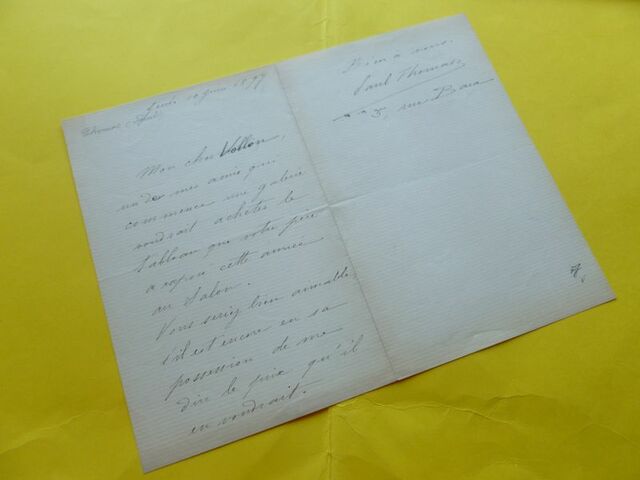 Jeudi 10 juin 1897
Thomas (Paul)
Mon cher Vollon,
un de mes amis qui
commence une galerie
voudrait acheter le
tableau que votre père
a exposé cette année
au Salon.
Vous seriez bien aimable,
s'il est encore en sa
possession de me
dire le prix qu'il
en voudrait.
Bien à vous.
Paul Thomas
rue Bara